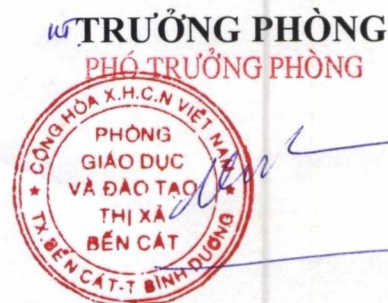 KT TRƯỞNG PHÒNG
PHÓ TRƯỞNG PHÒNG
CỘNG HÒA X.H.C.N VIỆT NAM
PHÒNG
GIÁO DỤC
VÀ ĐÀO TẠO
THỊ XÃ
BẾN CÁT
TX.BẾN CÁT-T BÌNH DƯƠNG